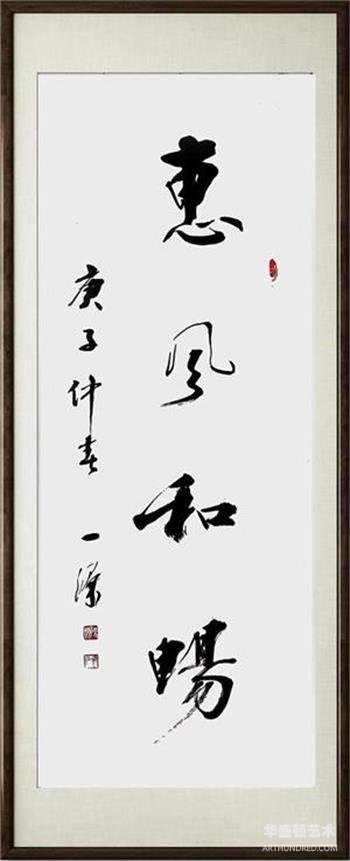 惠風和暢
庚子仲春 一濤
华盛顿艺术
ARTHUNDRED.COM